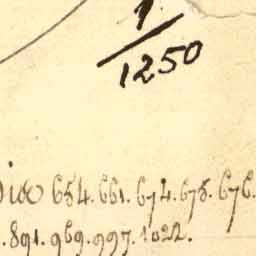 1/1250
654. 661. 674. 675. 676.
. 891. 969. 997. 1022.